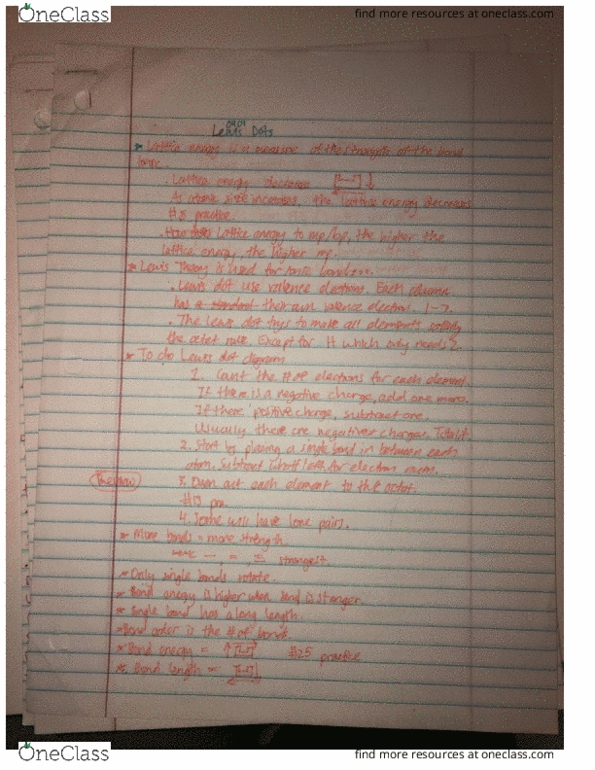 OneClass
find more resources at oneclass.com
Lewis Dots
* Lattice energy is a measure of the strength of the bond
Ionic.
· Lattice energy decrease
As atomic size increases, the lattice energy decreases
#8 practice.
· Lattice energy to mp/bp, the higher the
lattice energy, the higher mp.
* Lewis Theory is used for ionic
· Lewis dot use valence electrons. Each column
has a standard their own valence electron. 1-7
· The lewis dot trys to make all elements satisfy
the octet rule. Except for H which only needs 2.
* To do Lewis dot diagram
1. Count the # of electrons for each element.
If there is a negative charge, add one more.
If there positive charge, subtract one.
Usually there are negative charges.
2. Start by placing a single bond in between each
atom. Subtract what left for electron
3. Down out each element to the octet.
#13
4. Some will have lone pairs.
* More bonds = more strength
weak - , = , ≡ strongest
* Only single bonds rotate.
* Bond energy is higher when bond is stronger.
* Single bond has a long length
* Bond order is the # of bonds.
* Bond energy = #25 practice
* Bond length =
OneClass
find more resources at oneclass.com